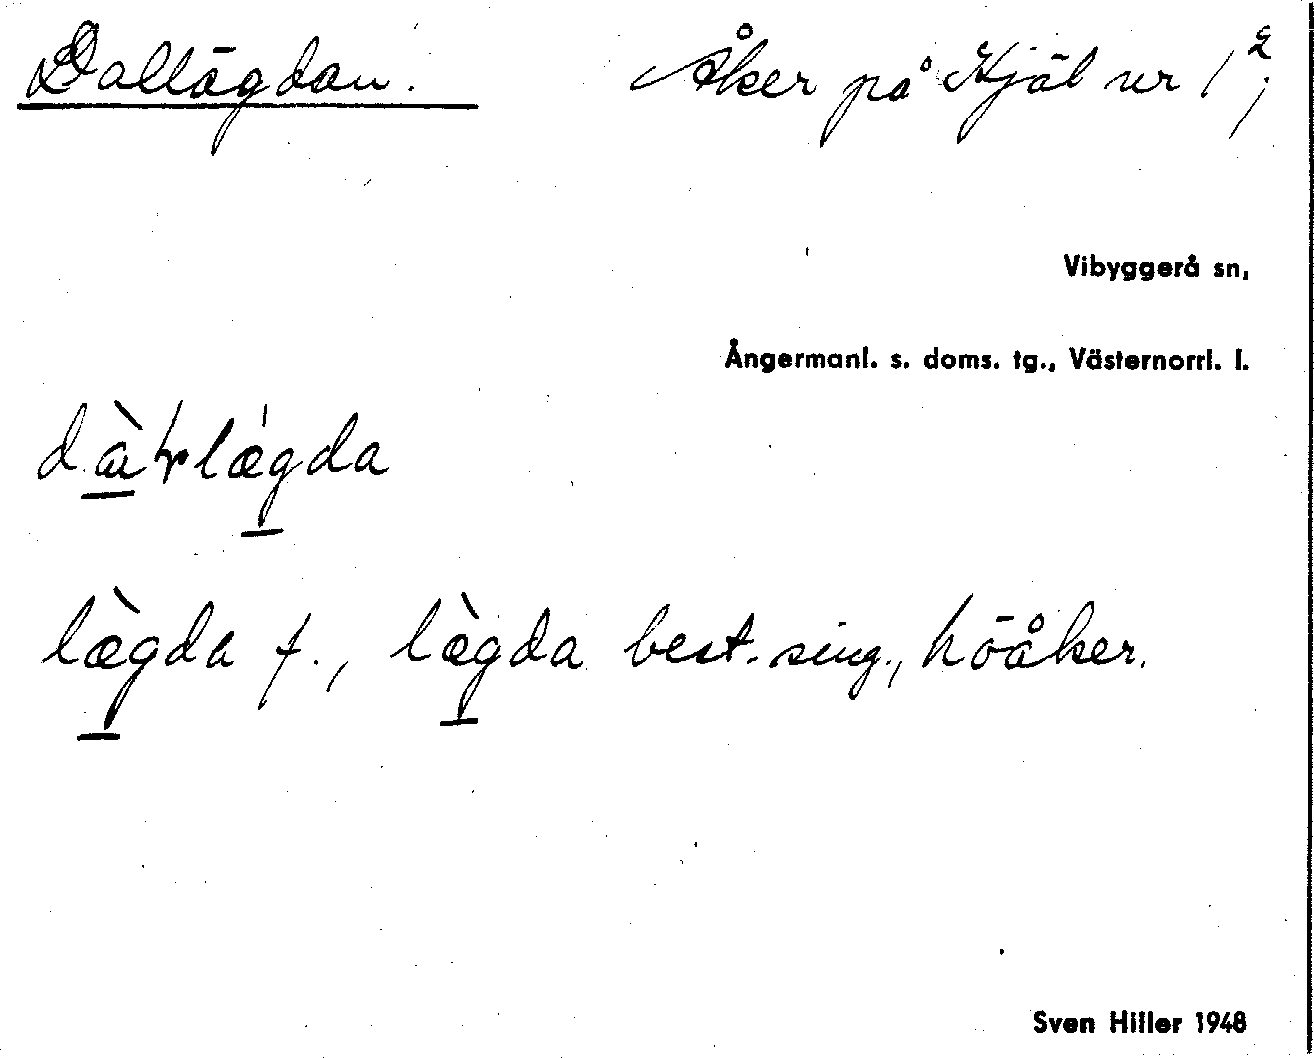 Dallägdan. Åker på Kjäl nr 1²;
Vibyggerå sn,
Ångermanl. s. doms. tg., Västernorrl. l.
lægda f., lægda best. sing., höåker.
Sven Hiller 1948